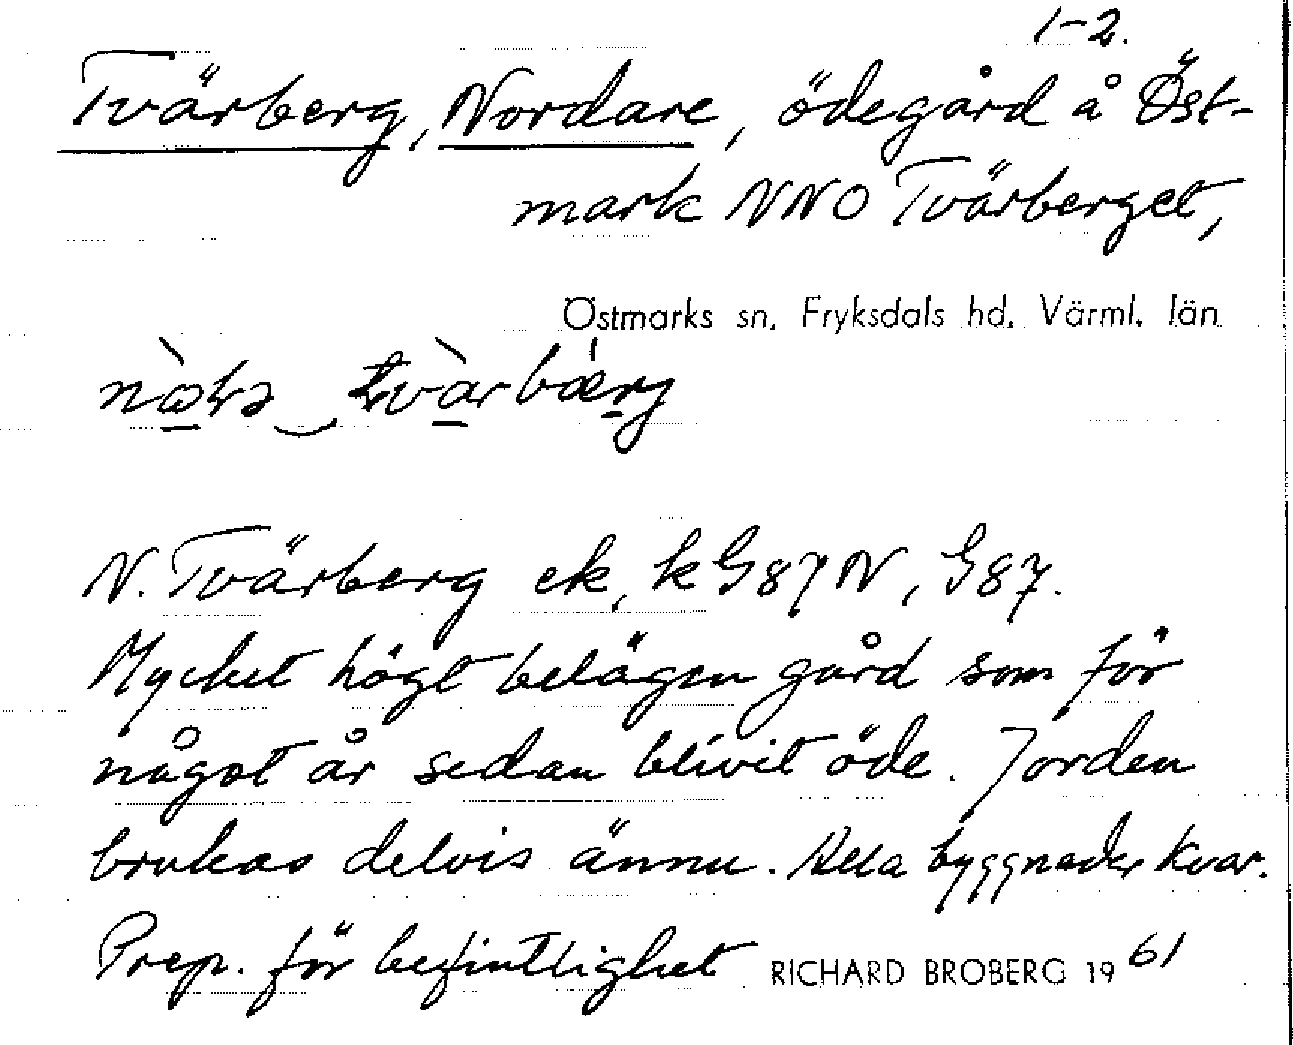 1-2.
Tvärberg, Nordare, ödegård å Öst-
mark NNO Tvärberget,
Östmarks sn, Fryksdals hd, Värml. län
N. Tvärberg ek, k G87N, G87.
Mycket högt belägen gård som för
något år sedan blivit öde. Jorden
brukas delvis ännu. Alla byggnader kvar.
Prep. för befintlighet RICHARD BROBERG 1961